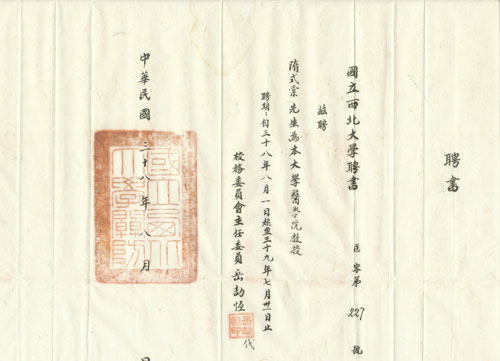 聘書
國立西北大學聘書 字第 227 號
茲聘
隋式棠先生為本大學醫學院教授
聘期：自三十八年八月一日起至三十九年七月卅一日止
校務委員會主任委員 岳劼恆 代
中華民國三十八年八月 日
國立西北大學關防